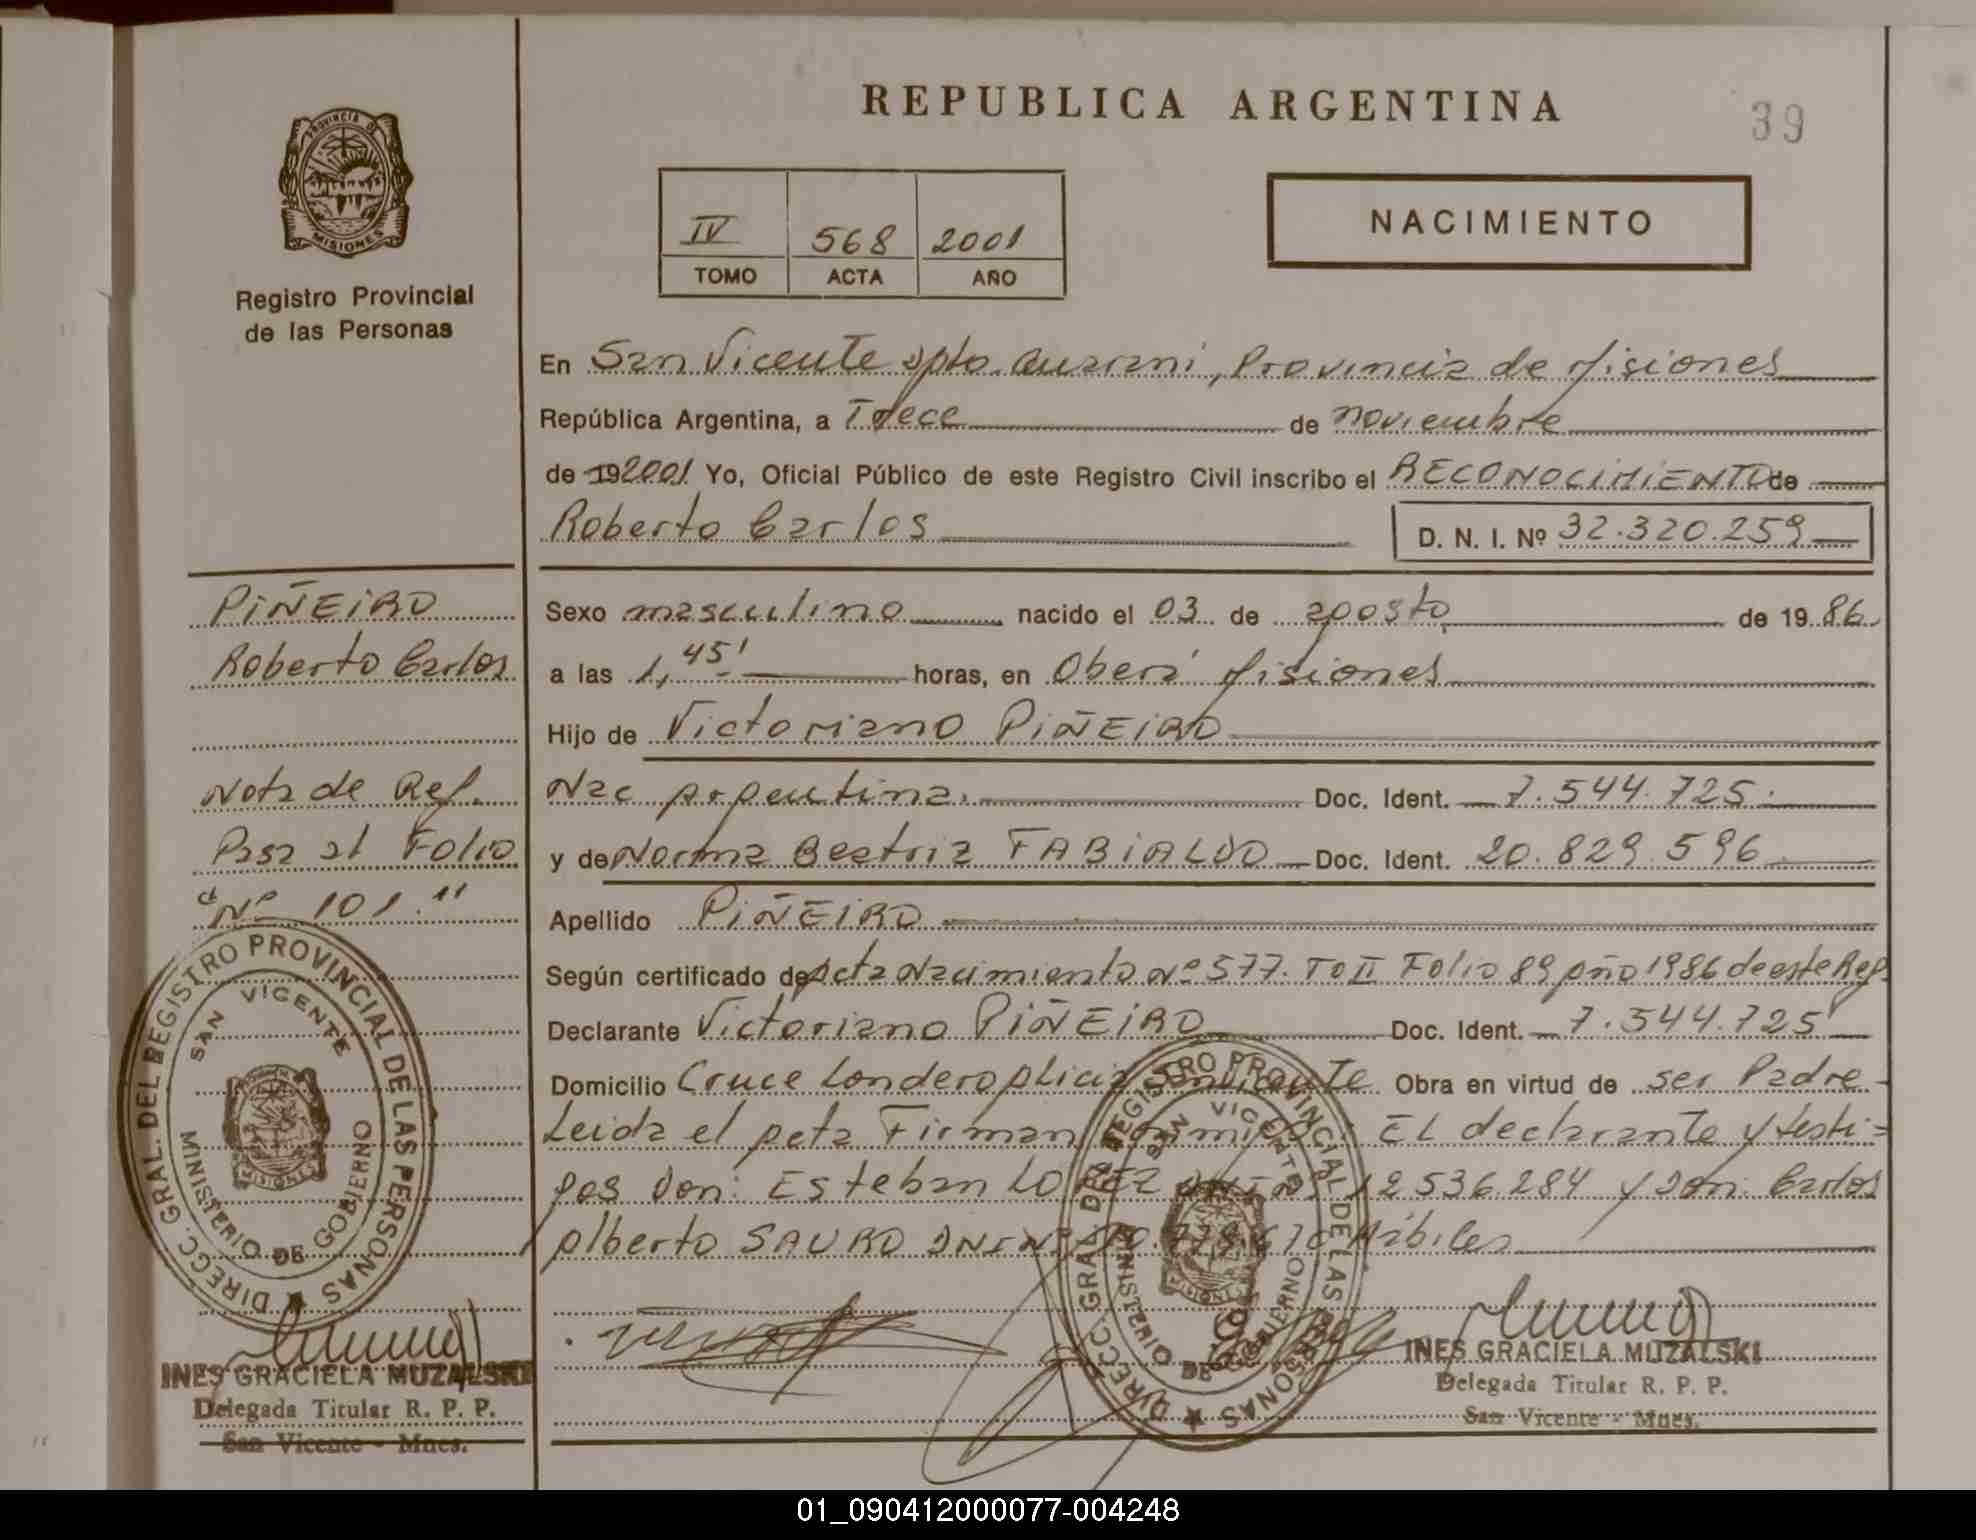 REPUBLICA ARGENTINA
39
PROVINCIA DE
MISIONES
Registro Provincial
de las Personas
IV 568 2001
TOMO ACTA AÑO
NACIMIENTO
En San Vicente Dpto. Guarani, Provincia de Misiones
República Argentina, a Trece de noviembre
de 19 2001 Yo, Oficial Público de este Registro Civil inscribo el RECONOCIMIENTO de
Roberto Carlos D. N. I. Nº 32.320.259
PIÑEIRO
Roberto Carlos
Nota de Ref.
Pasa al Folio
"Nº 101."
Sexo masculino nacido el 03 de agosto de 19 86
a las 1,45' horas, en Oberá Misiones
Hijo de Victoriano PIÑEIRO
Nac Argentina. Doc. Ident. 7.544.725.
y de Norma Beatriz FABIALDO Doc. Ident. 20.829.596
Apellido PIÑEIRO
Según certificado de Acta Nacimiento Nº 577. Tº II Folio 89 Año 1986 de este Reg.
Declarante Victoriano PIÑEIRO Doc. Ident. 7.544.725
Domicilio Cruce Londero Alicia San Vicente Obra en virtud de ser Padre
Leida el Acta Firman conmigo: EL declarante y testi=
gos Don: Esteban LOPEZ DNI Nº 12.536.284 y Don: Carlos
Alberto SAURO DNI Nº Hábiles
DIRECC. GRAL. DEL REGISTRO PROVINCIAL DE LAS PERSONAS
SAN VICENTE
MINISTERIO DE GOBIERNO
MISIONES
DIRECC. GRAL. DEL REGISTRO PROVINCIAL DE LAS PERSONAS
SAN VICENTE
MINISTERIO DE GOBIERNO
MISIONES
INES GRACIELA MUZALSKI
Delegada Titular R. P. P.
San Vicente - Mnes.
INES GRACIELA MUZALSKI
Delegada Titular R. P. P.
San Vicente - Mnes.
01_090412000077-004248